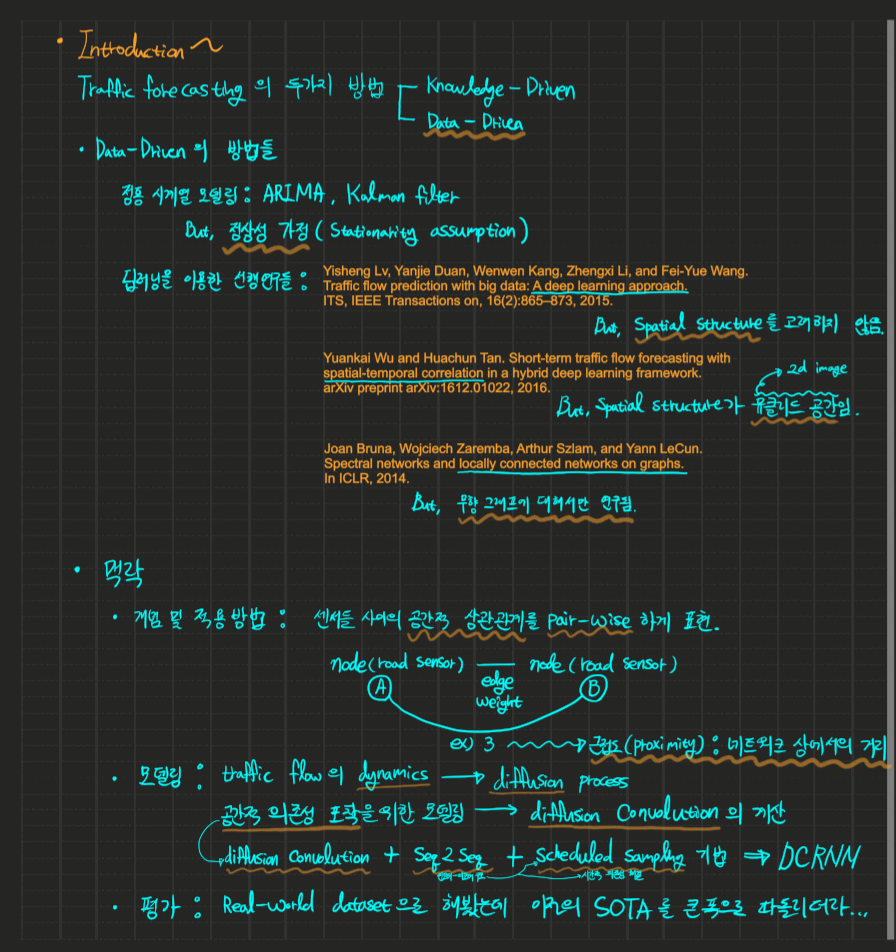 • Introduction ~
Traffic forecasting 의 두가지 방법
Knowledge-Driven
Data-Driven
• Data-Driven 의 방법들
시계열 모델링 : ARIMA, Kalman filter
But, 정상성 가정 (Stationarity assumption)
딥러닝을 이용한 선행연구들 :
Yisheng Lv, Yanjie Duan, Wenwen Kang, Zhengxi Li, and Fei-Yue Wang.
Traffic flow prediction with big data: A deep learning approach.
ITS, IEEE Transactions on, 16(2):865–873, 2015.
But, Spatial structure를 고려하지 않음.
Yuankai Wu and Huachun Tan. Short-term traffic flow forecasting with
spatial-temporal correlation in a hybrid deep learning framework.
arXiv preprint arXiv:1612.01022, 2016.
2d image
But, Spatial structure가 유클리드 공간임.
Joan Bruna, Wojciech Zaremba, Arthur Szlam, and Yann LeCun.
Spectral networks and locally connected networks on graphs.
In ICLR, 2014.
But, 무향 그래프에 대해서만 연구됨.
• 맥락
• 개념 및 적용방법 : 센서들 사이의 공간적 상관관계를 pair-wise 하게 표현.
node(road sensor) — node(road sensor)
A edge B
weight
ex) 3 → 근접도(proximity) : 네트워크 상에서의 거리
• 모델링 : traffic flow의 dynamics → diffusion process
공간적 의존성 포착을 위한 모델링 → diffusion Convolution 의 계산
diffusion convolution + Seq2Seq + scheduled sampling 기법 ⇒ DCRNN
• 평가 : Real-world dataset으로 해봤는데 이전의 SOTA를 큰폭으로 따돌리더라...